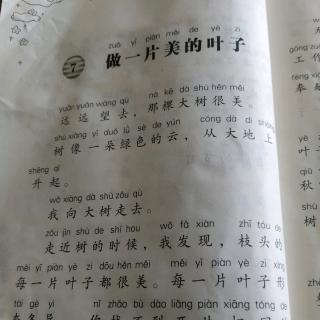 zuò yī piàn měi de yè zi
7 做一片美的叶子
yuǎn yuǎn wàng qù nà kē dà shù hěn měi
远远望去，那棵大树很美。
shù xiàng yī duǒ lǜ sè de yún cóng dà dì shàng
树像一朵绿色的云，从大地上
shēng qǐ
升起。
wǒ xiàng dà shù zǒu qù
我向大树走去。
zǒu jìn shù de shí hou wǒ fā xiàn zhī tóu de
走近树的时候，我发现，枝头的
měi yī piàn yè zi dōu hěn měi měi yī piàn yè zi xíng
每一片叶子都很美。每一片叶子形
tài gè yì nǐ zhǎo bù dào liǎng piàn xiāng tóng de
gōng zuò
工作
奉
叶子
秋